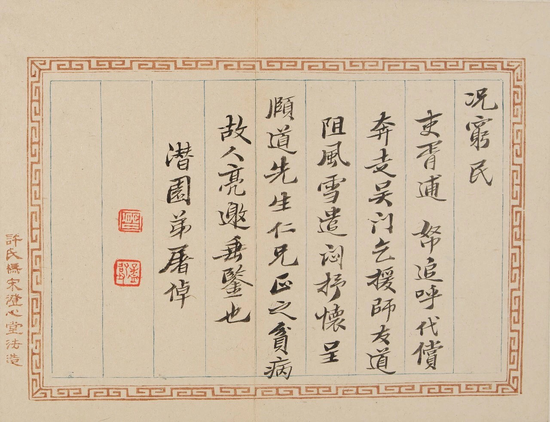 况窮民
吏胥逋帑追呼代償
奔走吴门乞援師友道
阻風雪遣悶抒懷呈
頤道先生仁兄正之貧病
故人亮邀垂鑒也
潜園弟屠倬
許氏宋澄心堂法造